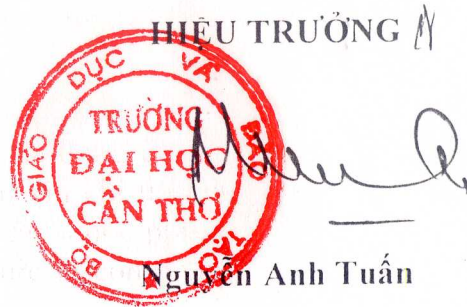 HIỆU TRƯỞNG
BỘ GIÁO DỤC VÀ ĐÀO TẠO
TRƯỜNG
ĐẠI HỌC
CẦN THƠ
Nguyễn Anh Tuấn